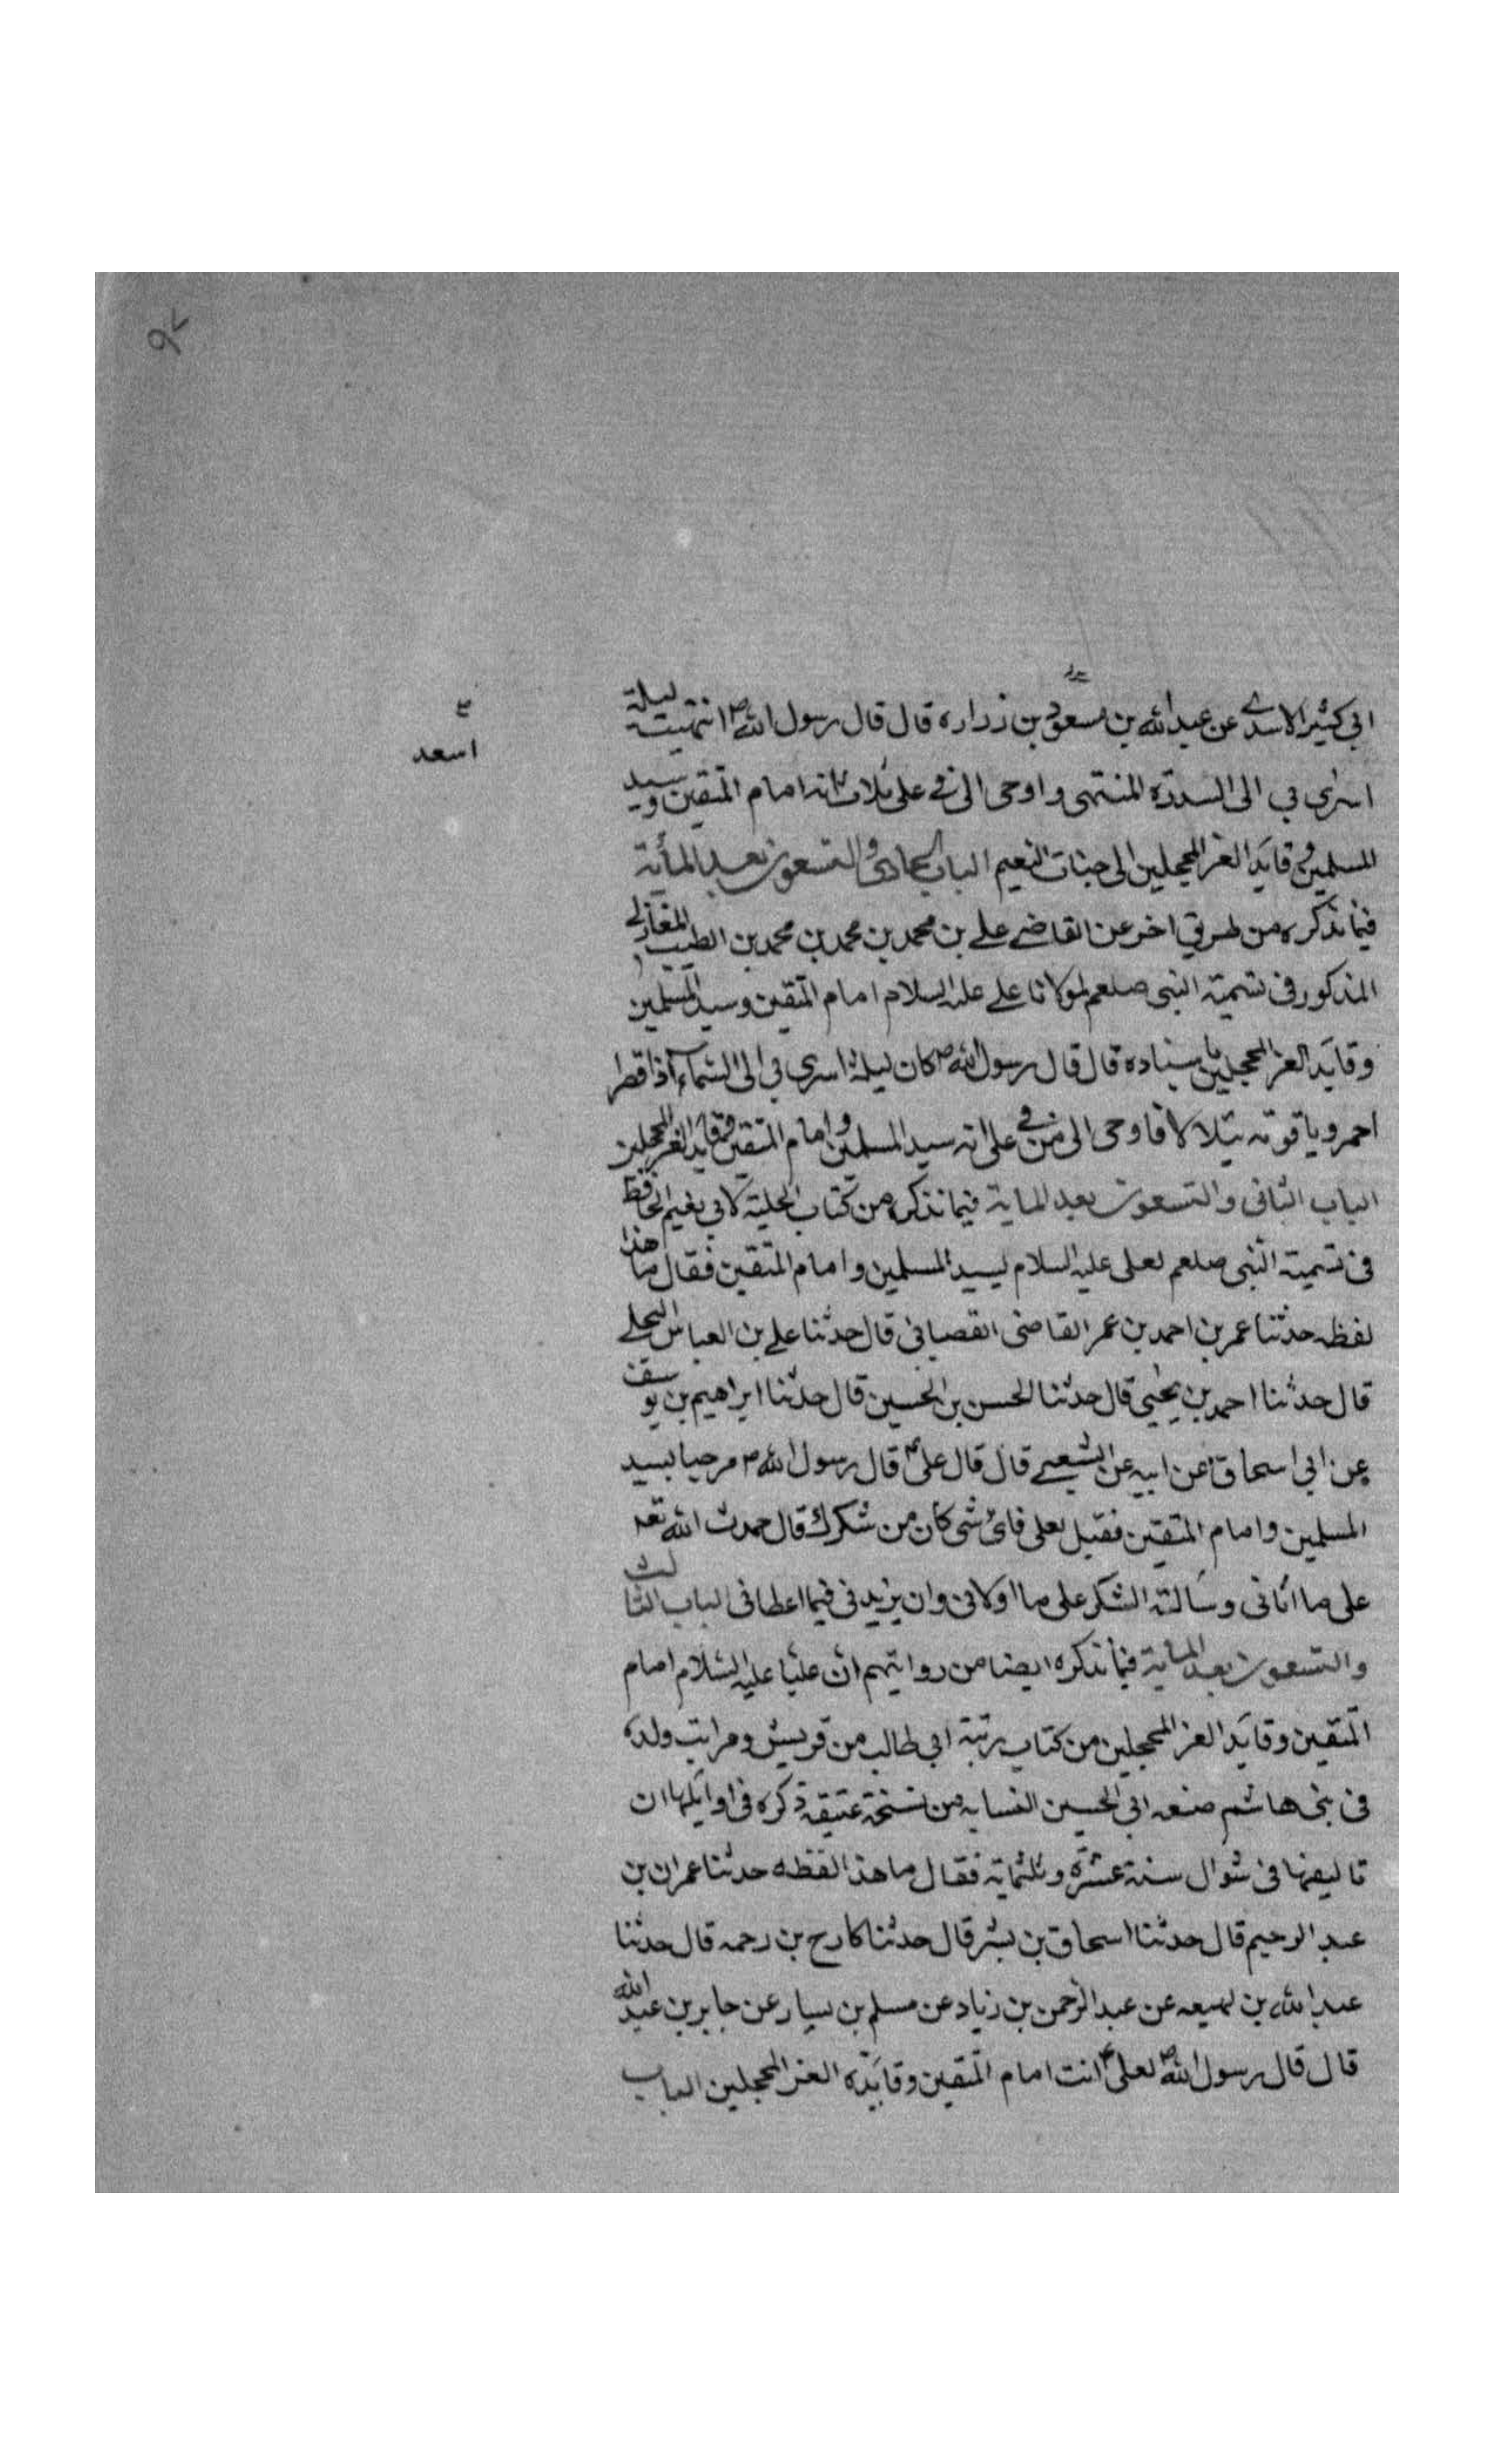 ابي كثير الاسدي عن عبد الله بن مسعود بن زراره قال قال رسول الله ص انتهيت ليلة
اسعد
اسري بي الى السدرة المنتهى واوحى الي في علي ثلاث انه امام المتقين وسيد
المسلمين وقايد الغر المحجلين الى جنات النعيم الباب الحادي والتسعون بعد المأية
فيما نذكره من طريق اخر عن القاضي علي بن محمد بن محمد بن محمد بن الطيب المغازلي
المذكور في تسمية النبي صلعم لمولانا علي عليه السلام امام المتقين وسيد المسلمين
وقايد الغر المحجلين باسناده قال قال رسول الله ص كان ليلة اسري بي الى السماء اذا قصر
احمر وياقوته يتلالا فاوحى الي في علي انه سيد المسلمين وامام المتقين وقايد الغر المحجلين
الباب الثاني والتسعون بعد الماية فيما نذكره من كتاب الحلية لابي نعيم الحافظ
في تسمية النبي صلعم لعلي عليه السلام بسيد المسلمين وامام المتقين فقال ما هذا
لفظه حدثنا عمر بن احمد بن عمر القاضي القصباني قال حدثنا علي بن العباس البجلي
قال حدثنا احمد بن يحيى قال حدثنا الحسن بن الحسين قال حدثنا ابراهيم بن يوسف
عن ابي اسحاق عن ابيه عن الشعبي قال قال علي ع قال رسول الله ص مرحبا بسيد
المسلمين وامام المتقين فقيل لعلي فاي شي كان من شكرك قال حمدت الله تعه
على ما اتاني وسالته الشكر على ما اولاني وان يزيدني فيما اعطاني الباب الثالث
والتسعون بعد الماية فيما نذكره ايضا من روايتهم ان عليا عليه السلام امام
المتقين وقايد الغر المحجلين من كتاب رتبة ابي طالب من قريش ومراتب ولده
في بني هاشم صنعه ابي الحسين النسابه من نسخة عتيقه ذكره في اوايلها ان
تاليفها في شوال سنة عشرة وثلثماية فقال ما هذا لفظه حدثنا عمران بن
عبد الرحيم قال حدثنا اسحاق بن بشر قال حدثنا كادح بن رحمه قال حدثنا
عبد الله بن لهيعه عن عبد الرحمن بن زياد عن مسلم بن يسار عن جابر بن عبد الله
قال قال رسول الله ص لعلي ع انت امام المتقين وقايده الغر المحجلين الباب